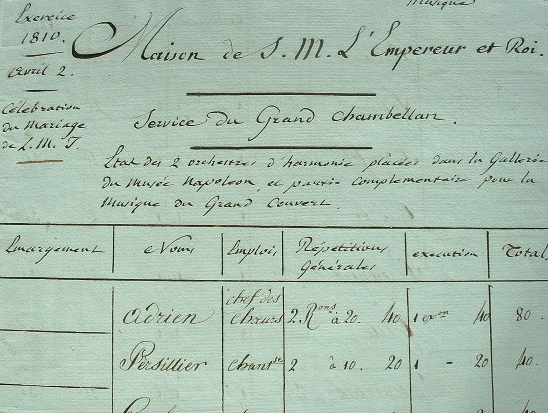 Musique
Exercice
1810.
Avril 2.
Célébration
du Mariage
de L. M. I.
Maison de S. M. L'Empereur et Roi.
Service du Grand Chambellan.
Etat des 2 orchestres d'harmonie placées dans la Gallerie
du Musée Napoleon, et partie Complementaire pour la
Musique du Grand Couvert.
Emargement Noms Emplois Répétitions Générales execution Total
Adrien chef des chœurs 2. Rons à 20. 40 1 exon 40 80.
Persillier chant 2 à 10. 20 1 - 20 40.